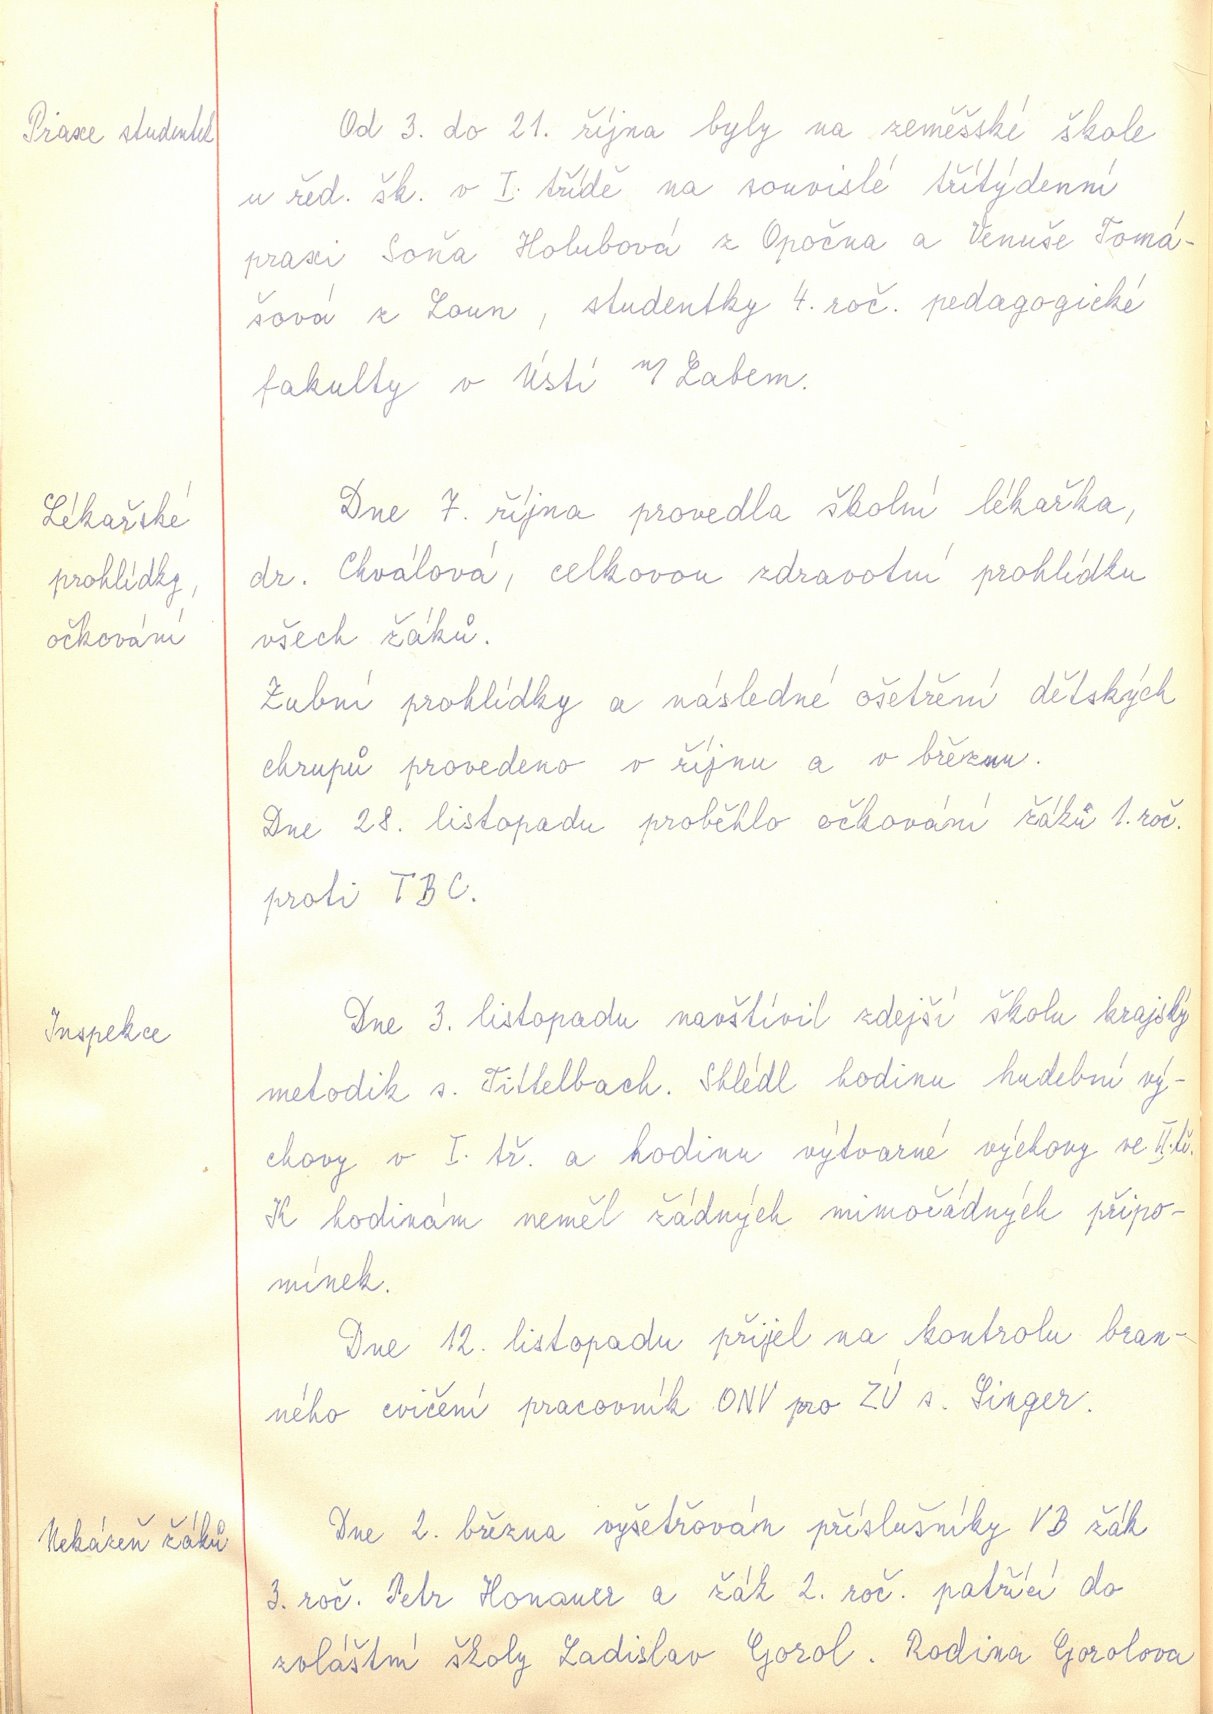 Praxe studentek
Od 3. do 21. října byly na zeměšské škole
u řed. šk. v I. třídě na souvislé třítýdenní
praxi Soňa Holubová z Opočna a Venuše Tomá-
šová z Loun, studentky 4. roč. pedagogické
fakulty v Ústí n/Labem.
Lékařské
prohlídky,
očkování
Dne 7. října provedla školní lékařka,
dr. Chválová, celkovou zdravotní prohlídku
všech žáků.
Zubní prohlídky a následné ošetření dětských
chrupů provedeno v říjnu a v březnu.
Dne 28. listopadu proběhlo očkování žáků 1. roč.
proti TBC.
Inspekce
Dne 3. listopadu navštívil zdejší školu krajský
metodik s. Tittelbach. Shlédl hodinu hudební vý-
chovy v I. tř. a hodinu výtvarné výchovy ve II. tř.
K hodinám neměl žádných mimořádných připo-
mínek.
Dne 12. listopadu přijel na kontrolu bran-
ného cvičení pracovník ONV pro ZÚ s. Singer.
Nekázeň žáků
Dne 2. března vyšetřován příslušníky VB žák
3. roč. Petr Honauer a žák 2. roč. patřící do
zvláštní školy Ladislav Gorol. Rodina Gorolova